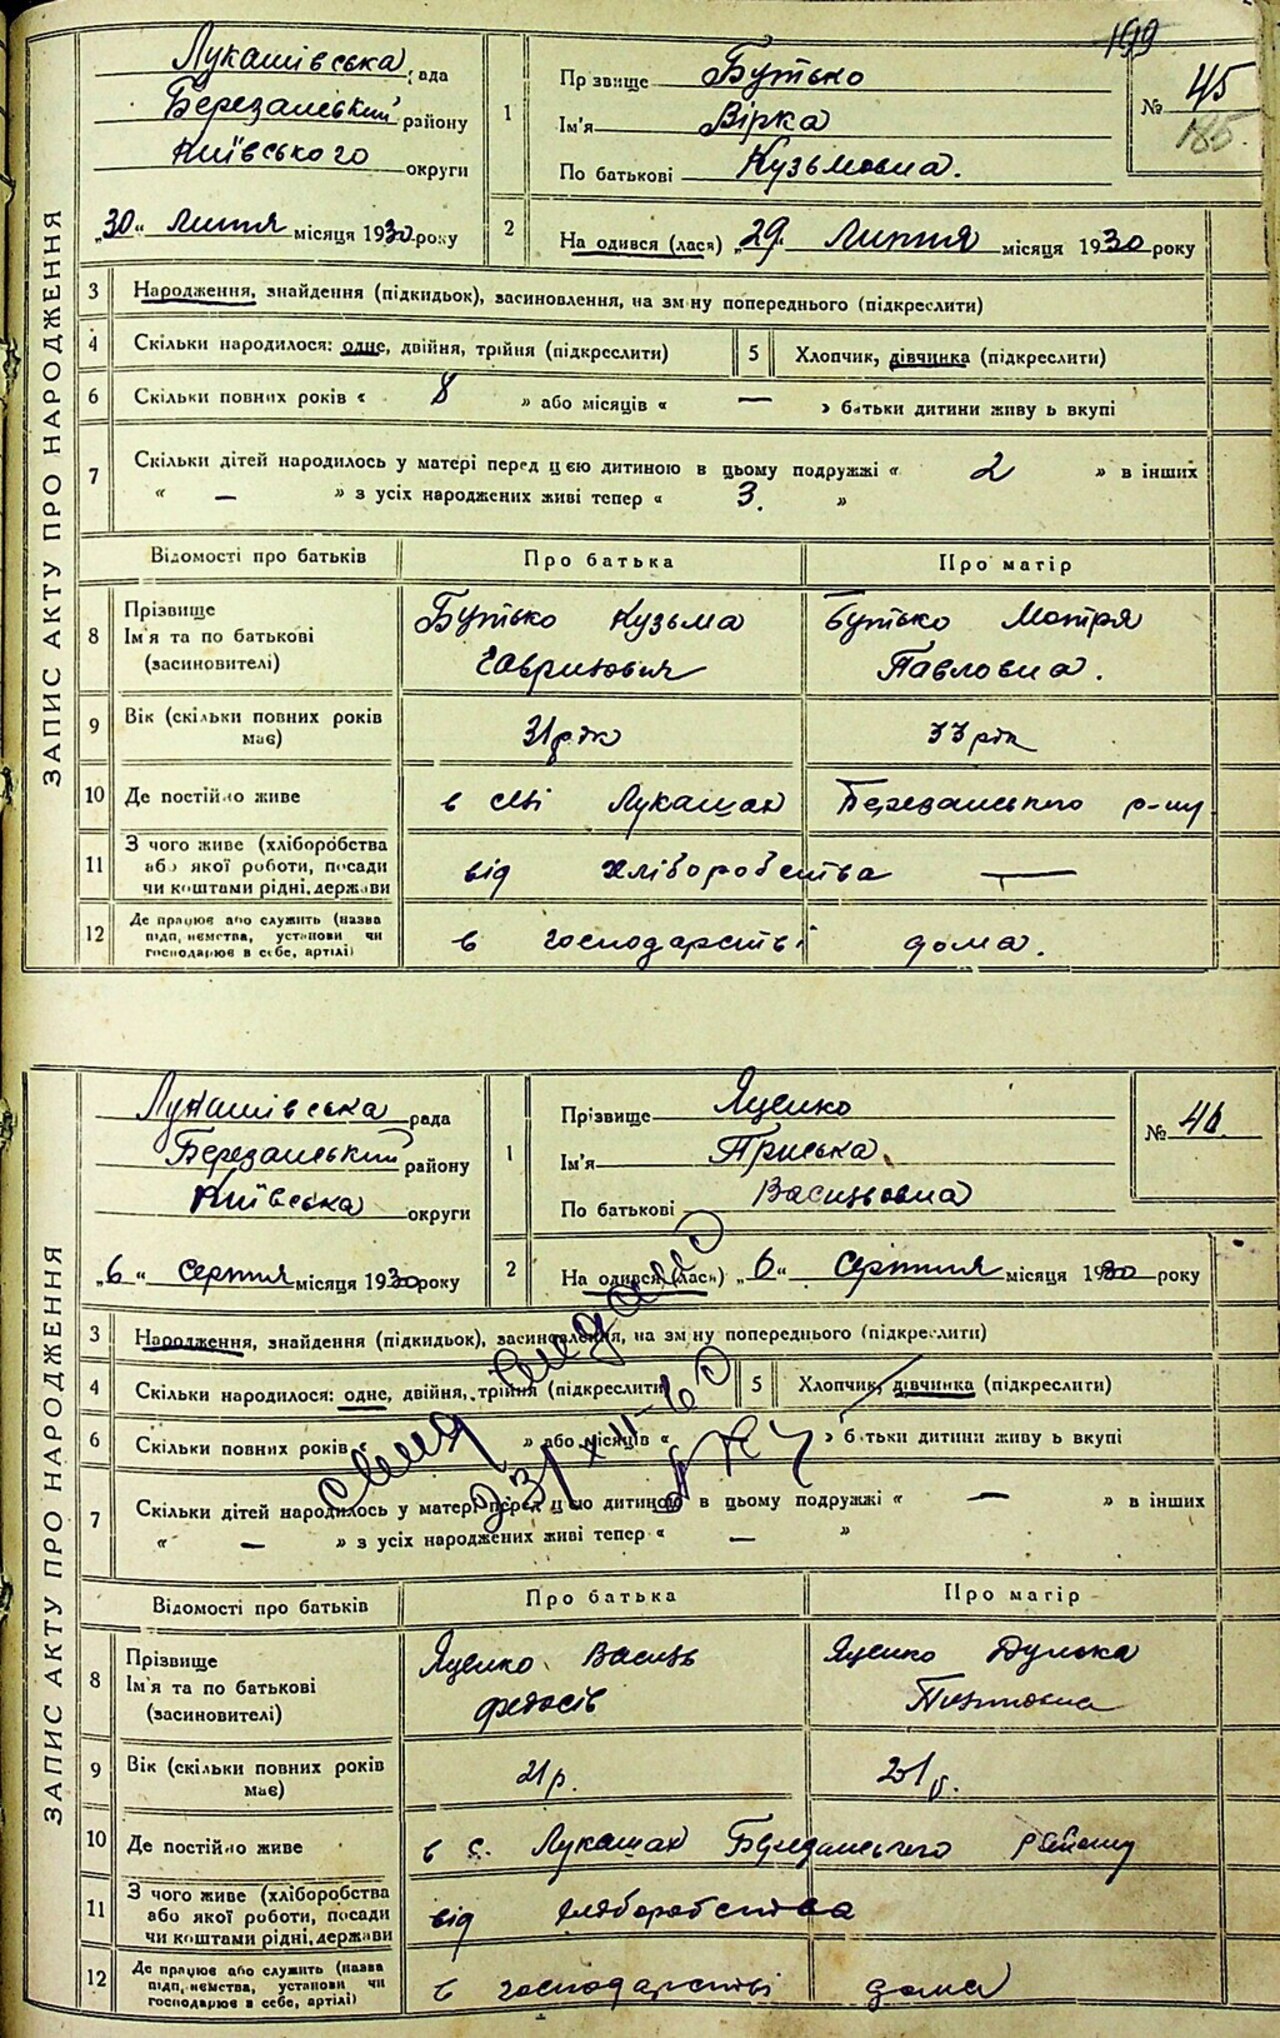 199
Лукашівська рада
Березанський району
Київського округи
„30“ Липня місяця 1930 року
1
Прізвище Бутько
Ім'я Вірка
По батькові Кузьмовна.
№ 45
185
2
На одився (лася) „29“ Липня місяця 1930 року
ЗАПИС АКТУ ПРО НАРОДЖЕННЯ
3 Народження, знайдення (підкидьок), засиновлення, на зм ну попереднього (підкреслити)
4 Скільки народилося: одне, двійня, трійня (підкреслити)
5 Хлопчик, дівчинка (підкреслити)
6 Скільки повних років « 8 » або місяців « — » батьки дитини живу ь вкупі
7 Скільки дітей народилось у матері перед цією дитиною в цьому подружжі « 2 » в інших
« — » з усіх народжених живі тепер « 3. »
Відомості про батьків Про батька Про матір
8 Прізвище
Ім'я та по батькові
(засиновителі)
Бутько Кузьма
Гаврилович
Бутько Мотря
Павловна.
9 Вік (скільки повних років
має)
31 рік
33 рік
10 Де постійно живе в селі Лукашах Березанського р-ну
11 З чого живе (хліборобства
або якої роботи, посади
чи коштами рідні, держави
від хліборобства —
12 Де працює або служить (назва
підп,иємства, установи чи
господарює в себе, артілі)
в господарстві дома.
Лукашівська рада
Березанський району
Київська округи
„6“ серпня місяця 1930 року
1
Прізвище Яценко
Ім'яПриська
По батькові Васильовна
№ 46.
2
На одився (лася) „6“ Серпня місяця 1930 року
ЗАПИС АКТУ ПРО НАРОДЖЕННЯ
3 Народження, знайдення (підкидьок), засиновлення, на зм ну попереднього (підкреслити)
4 Скільки народилося: одне, двійня, трійня (підкреслити)
5 Хлопчик, дівчинка (підкреслити)
6 Скільки повних років « » або місяців « » батьки дитини живу ь вкупі
7 Скільки дітей народилось у матері перед цією дитиною в цьому подружжі « — » в інших
« — » з усіх народжених живі тепер « — »
Відомості про батьків Про батька Про матір
8 Прізвище
Ім'я та по батькові
(засиновителі)
Яценко Василь
Федосів
Яценко Дунька
9 Вік (скільки повних років
має)
21 р.
21 р.
10 Де постійно живе в с. Лукашах Березанського району
11 З чого живе (хліборобства
або якої роботи, посади
чи коштами рідні, держави
від хліборобства
12 Де працює або служить (назва
підп,иємства, установи чи
господарює в себе, артілі)
в господарстві дома